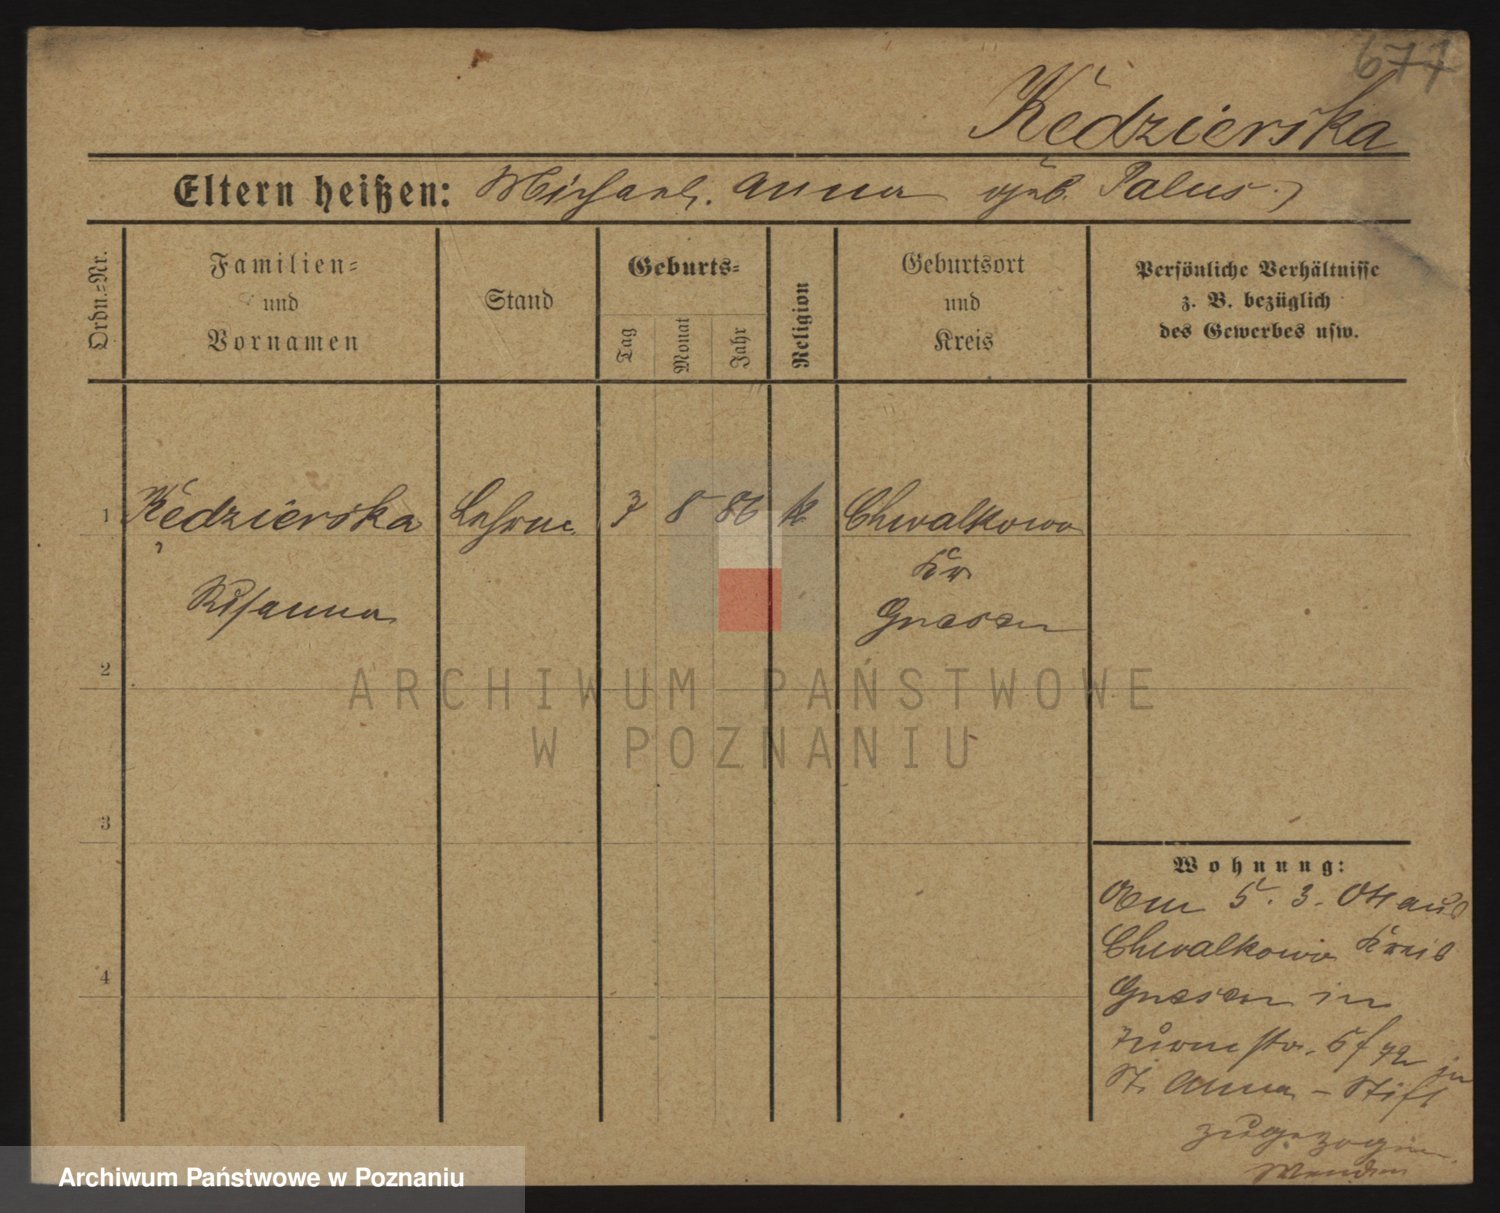 671
Kędzierska
Eltern heißen: Michael. Anna geb. Palus.
Ordn.-Nr.
Familien-
und
Vornamen
Stand
Geburts-
Tag
Monat
Jahr
Religion
Geburtsort
und
Kreis
Persönliche Verhältnisse
z. B. bezüglich
des Gewerbes usw.
1 Kędzierska 7 8 86 k Chwalkowo
Kr
Gnesen
2
3
4
Wohnung:
Am 5. 3. 04 aus
Chwalkowo Kreis
Gnesen in
in
St. Anna - Stift
zugezogen.
ARCHIWUM PAŃSTWOWE
W POZNANIU
Archiwum Państwowe w Poznaniu